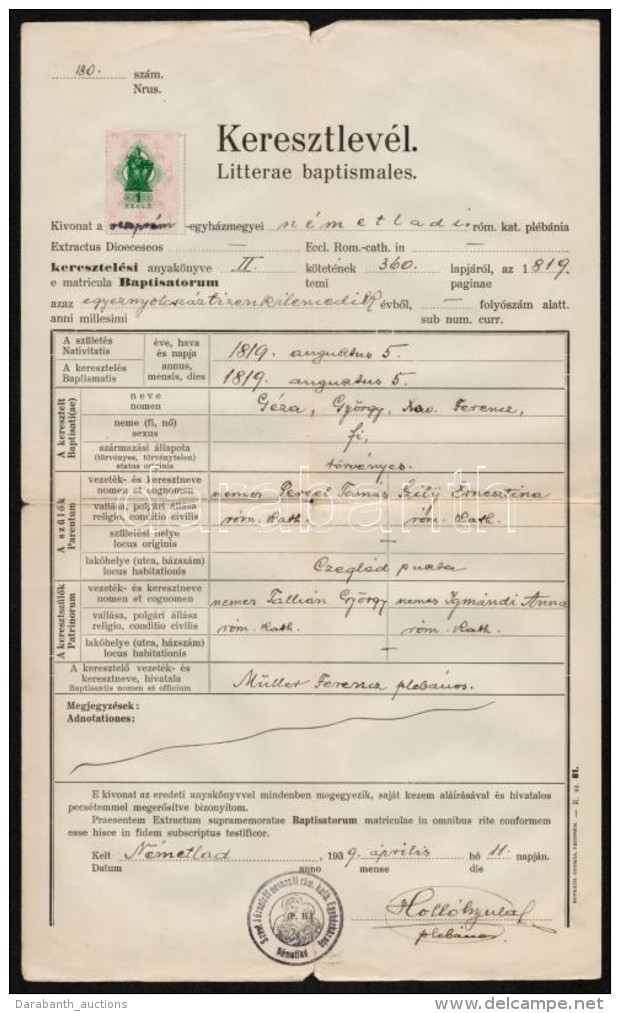 180. szám.
Nrus.
Keresztlevél.
Litterae baptismales.
1
PENGŐ
Kivonat a veszprém -egyházmegyei németladi róm. kat. plébánia
Extractus Dioeceseos — Eccl. Rom.-cath. in —
keresztelési anyakönyve II. kötetének 360. lapjáról, az 1819.
e matricula Baptisatorum temi paginae
azaz egyezernyolcszáztizenkilencedik évből, — folyószám alatt.
anni millesimi sub num. curr.
A születés
Nativitatis
éve, hava
és napja
annus,
mensis, dies
1819. augusztus 5.
A keresztelés
Baptismatis
1819. augusztus 5.
A keresztelt
Baptisati(ae)
neve
nomen
Géza, György, Xav. Ferencz,
neme (fi, nő)
sexus
fi,
származási állapota
(törvényes, törvénytelen)
status originis
törvényes.
A szülők
Parentum
vezeték- és keresztneve
nomen et cognomen
nemes Perczel Tamás Szily Ernesztina
vallása, polgári állása
religio, conditio civilis
róm. kath. róm. kath.
születési helye
locus originis
—
lakóhelye (utca, házszám)
locus habitationis
Czeglád puszta
A keresztszülők
Patrinorum
vezeték- és keresztneve
nomen et cognomen
nemes Tallián György nemes Igmándi Anna
vallása, polgári állása
religio, conditio civilis
róm. kath. róm. kath.
lakóhelye (utca, házszám)
locus habitationis
—
A keresztelő vezeték- és
keresztneve, hivatala
Baptisantis nomen et officium
Müller Ferencz plebános.
Megjegyzések:
Adnotationes:
E kivonat az eredeti anyakönyvvel mindenben megegyezik, saját kezem aláírásával és hivatalos
pecsétemmel megerősítve bizonyítom.
Praesentem Extractum supramemoratae Baptisatorum matriculae in omnibus rite conformem
esse hisce in fidem subscriptus testificor.
Kelt Németlad, 1939. április hó 11. napján.
Datum anno mense die
(P. H.)
Németlad
Holló Gyula
plebános.
R. sz. 81.
darabanth
Darabanth_auctions
delcampe.net